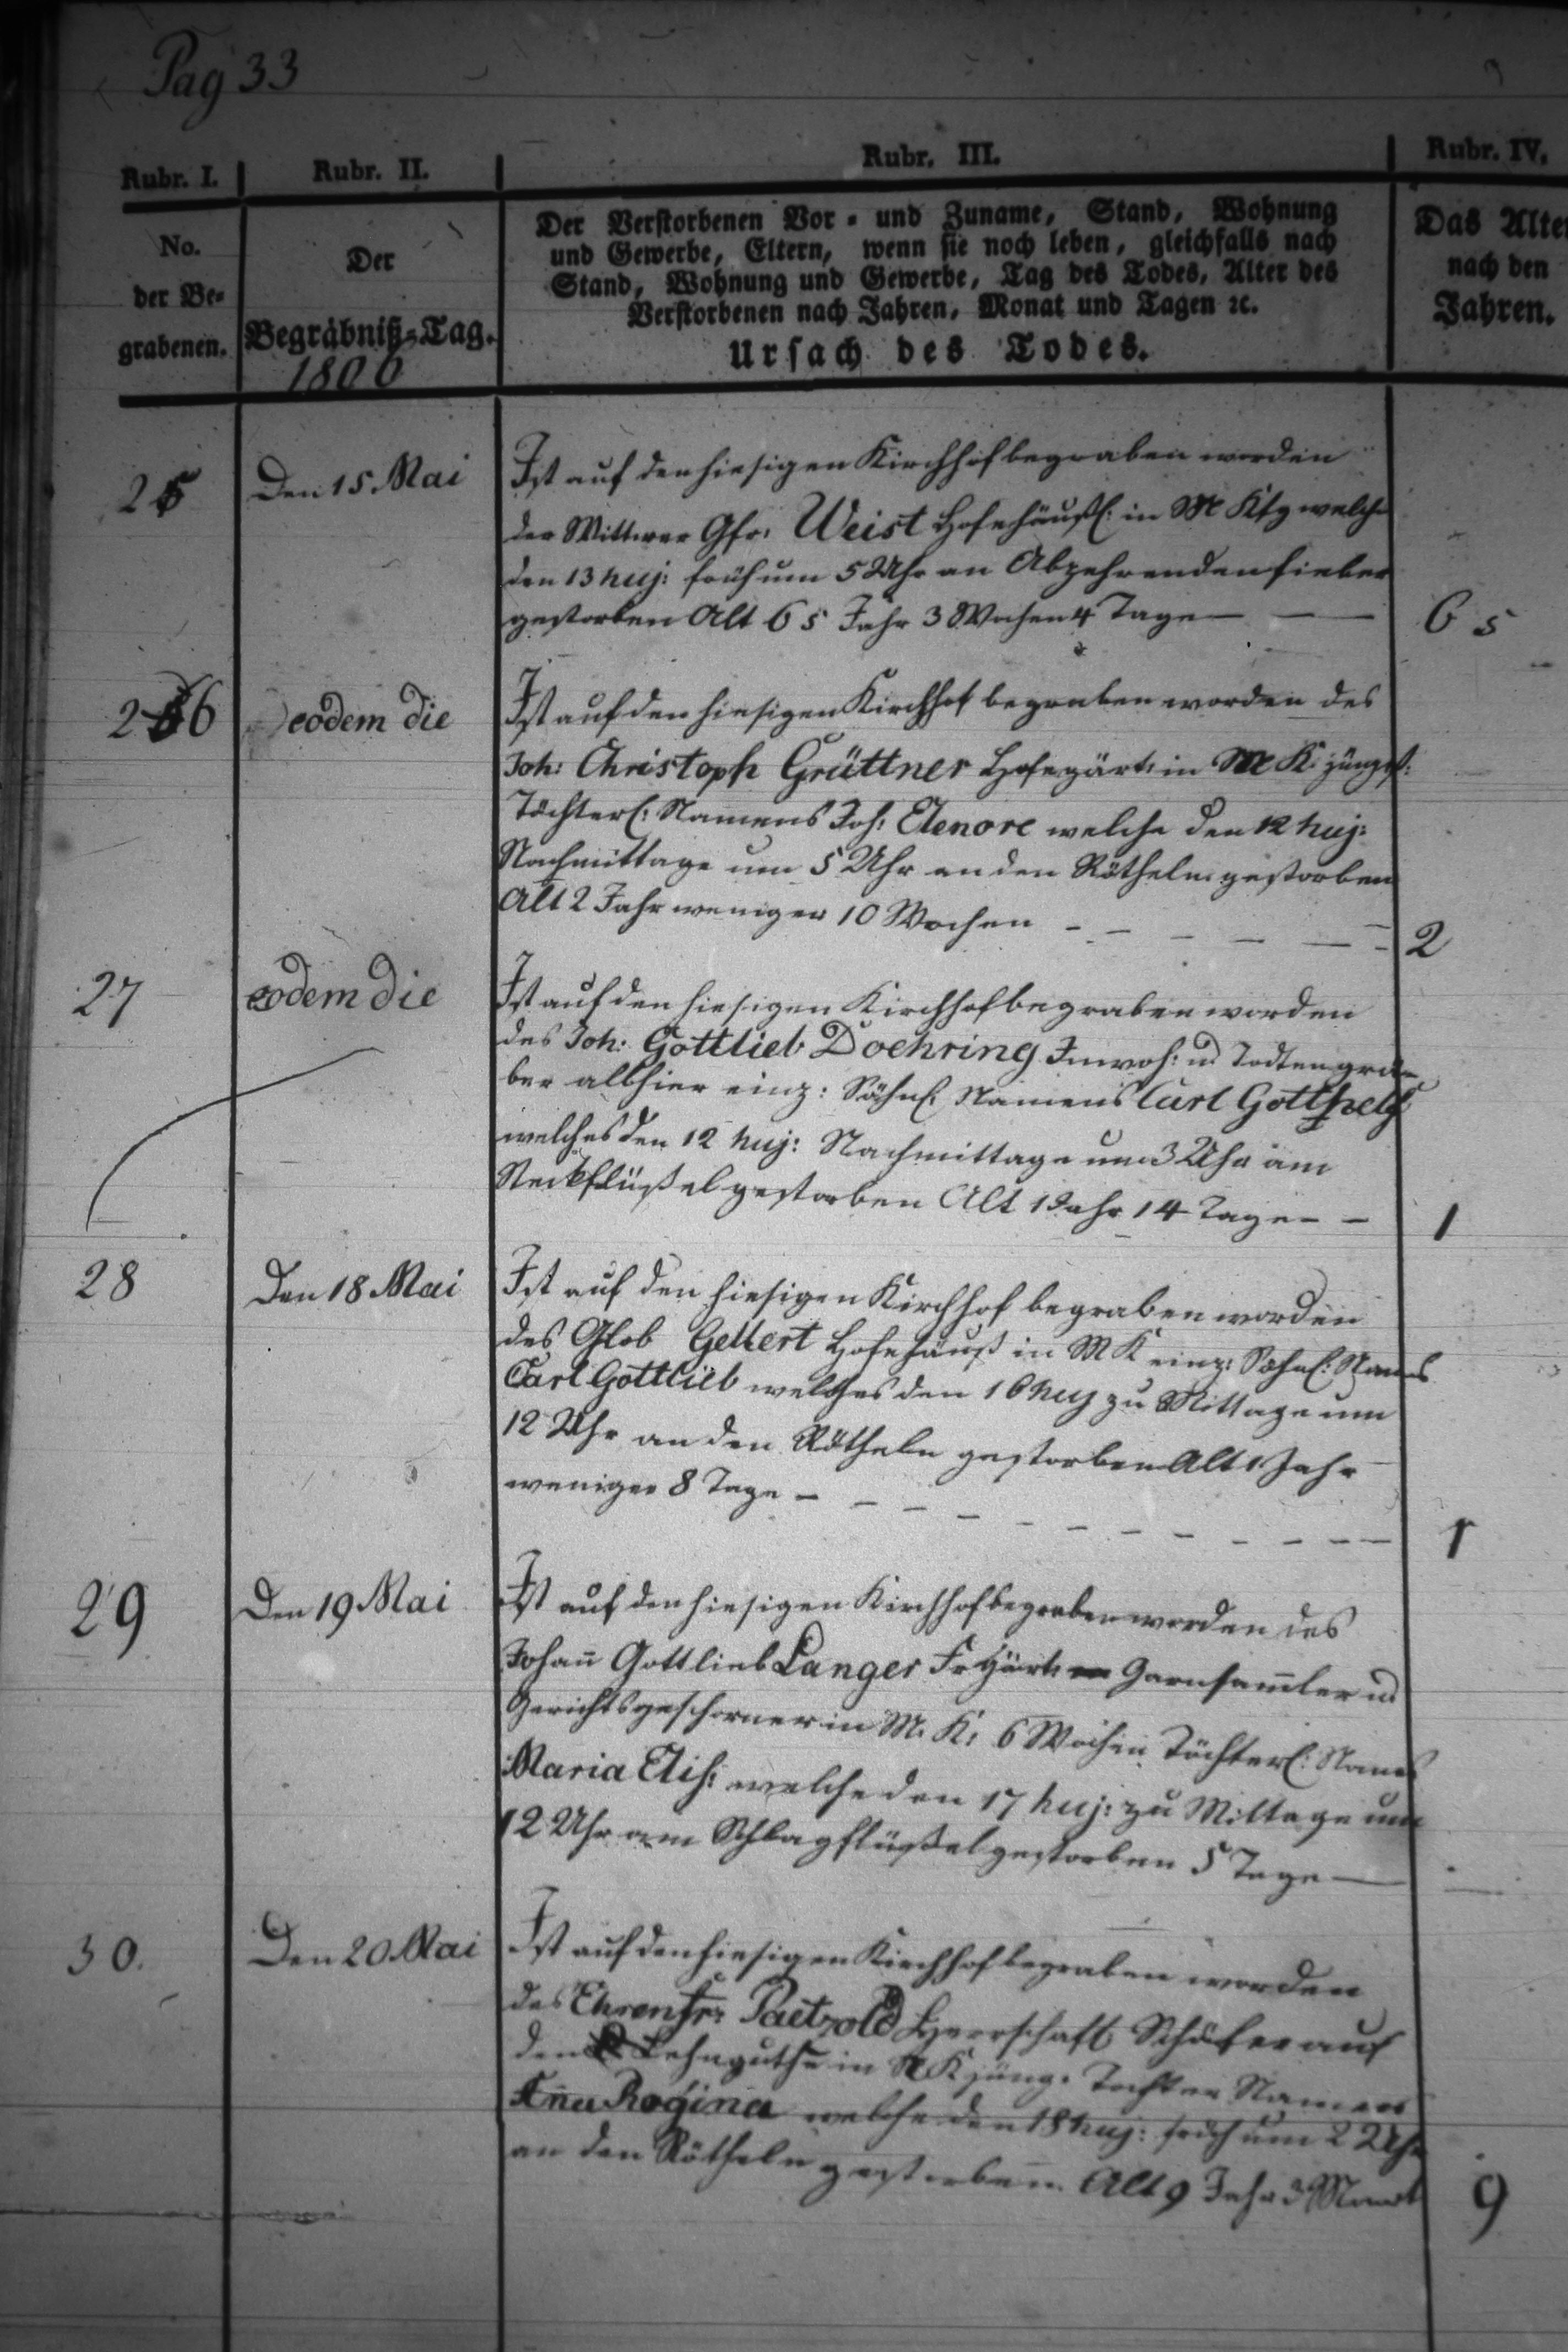 Pag 33
Rubr. I.
Rubr. II.
Rubr. III.
Rubr. IV.
No.
der Be-
grabenen.
Der
Begräbniß-Tag.
1806
Der Verstorbenen Vor- und Zuname, Stand, Wohnung
und Gewerbe, Eltern, wenn sie noch leben, gleichfalls nach
Stand, Wohnung und Gewerbe, Tag des Todes, Alter des
Verstorbenen nach Jahren, Monat und Tagen ꝛc.
Ursach des Todes.
Das Alte
nach den
Jahren.
25
Den 15 Mai
Ist auf den hiesigen Kirchhof begraben worden
der Wittwer Gfr: Weist Hofehäußl: in M welcher
den 13 huj: früh um 5 Uhr an Abzehrenden fieber
gestorben Alt 65 Jahr 3 Wochen 4 Tage
65
26
eodem die
Ist auf den hiesigen Kirchhof begraben worden des
Joh: Christoph Grüttner Hofegärt: in M K: jüngst:
Töchterl: Namens Joh: Elenore welche den 12 huj:
Nachmittage um 5 Uhr an den Rötheln gestorben
Alt 2 Jahr weniger 10 Wochen
2
27
eodem die
Ist auf den hiesigen Kirchhof begraben worden
des Joh: Gottlieb Doehring Inwoh: u Todtengrä-
ber allhier einz: Söhnl: Namens Carl Gotthelf
welches den 12 huj: Nachmittage um 3 Uhr am
Steckflüßel gestorben Alt 1 Jahr 14 Tage
1
28
Den 18 Mai
Ist auf den hiesigen Kirchhof begraben worden
des Glob Gellert Hofehäuß in M K einz: Söhnl: Namens
Carl Gottlieb welches den 16 huj zu Mittage um
12 Uhr an den Rötheln gestorben Alt 1 Jahr
weniger 8 Tage
1
29
Den 19 Mai
Ist auf den hiesigen Kirchhof begraben worden des
Johañ Gottlieb Langer Frgärt: Garnsam̄ler u
Gerichtsgeschworner in M. K: 6 Wochen Töchterl: Namens
Maria Elis: welche den 17 huj: zu Mittage um
12 Uhr am Schlagflüßel gestorben 5 Tage
30.
Den 20 Mai
Ist auf den hiesigen Kirchhof begraben worden
des Ehrenfr: Paetzold Herrschaftl Schäfer auf
den Lehnguthe in N K jüng: Tochter Namens
Aña Rosina welche den 18 huj: früh um 2 Uhr
an den Rötheln gestorben Alt 9 Jahr 3 Monat
9